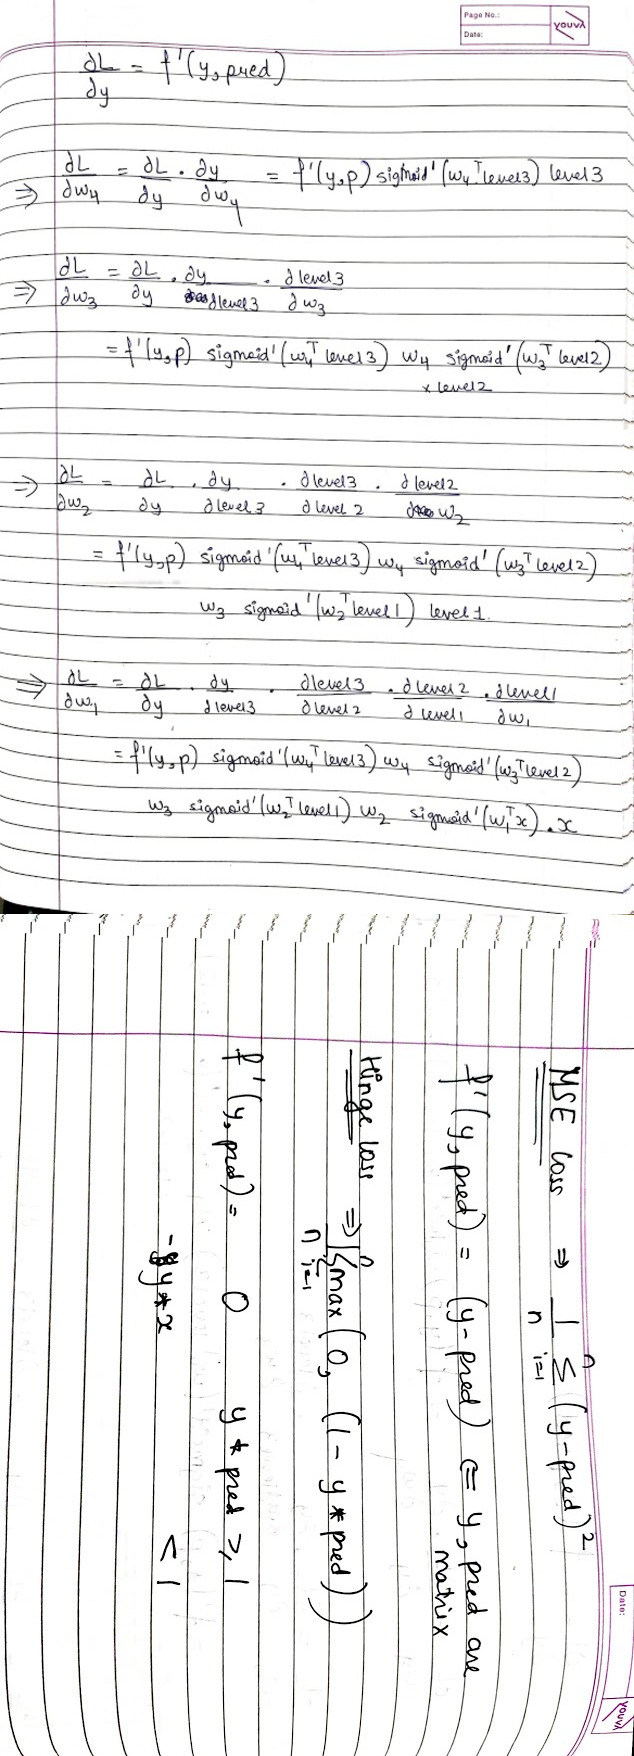 Page No.:
Date:
YOUVA
∂L/∂y = f'(y, pred)
⇒ ∂L/∂w4 = ∂L/∂y . ∂y/∂w4 = f'(y,p) sigmoid'(w4ᵀ level3) level3
⇒ ∂L/∂w3 = ∂L/∂y . ∂y/∂level3 . ∂level3/∂w3
= f'(y,p) sigmoid'(w4ᵀ level3) w4 sigmoid'(w3ᵀ level2)
x level2
⇒ ∂L/∂w2 = ∂L/∂y . ∂y/∂level3 . ∂level3/∂level2 . ∂level2/∂w2
= f'(y,p) sigmoid'(w4ᵀ level3) w4 sigmoid'(w3ᵀ level2)
w3 sigmoid'(w2ᵀ level1) level1.
⇒ ∂L/∂w1 = ∂L/∂y . ∂y/∂level3 . ∂level3/∂level2 . ∂level2/∂level1 . ∂level1/∂w1
= f'(y,p) sigmoid'(w4ᵀ level3) w4 sigmoid'(w3ᵀ level2)
w3 sigmoid'(w2ᵀ level1) w2 sigmoid'(w1ᵀ x) . x
Date:
YOUVA
MSE loss ⇒ 1/n Σ_{i=1}^{n} (y-pred)²
f'(y, pred) = (y-pred) ⇐ y, pred are
matrix
Hinge loss ⇒ 1/n Σ_{i=1}^{n} max(0, (1 - y * pred))
f'(y, pred) = 0 y * pred ≥ 1
-y * x < 1